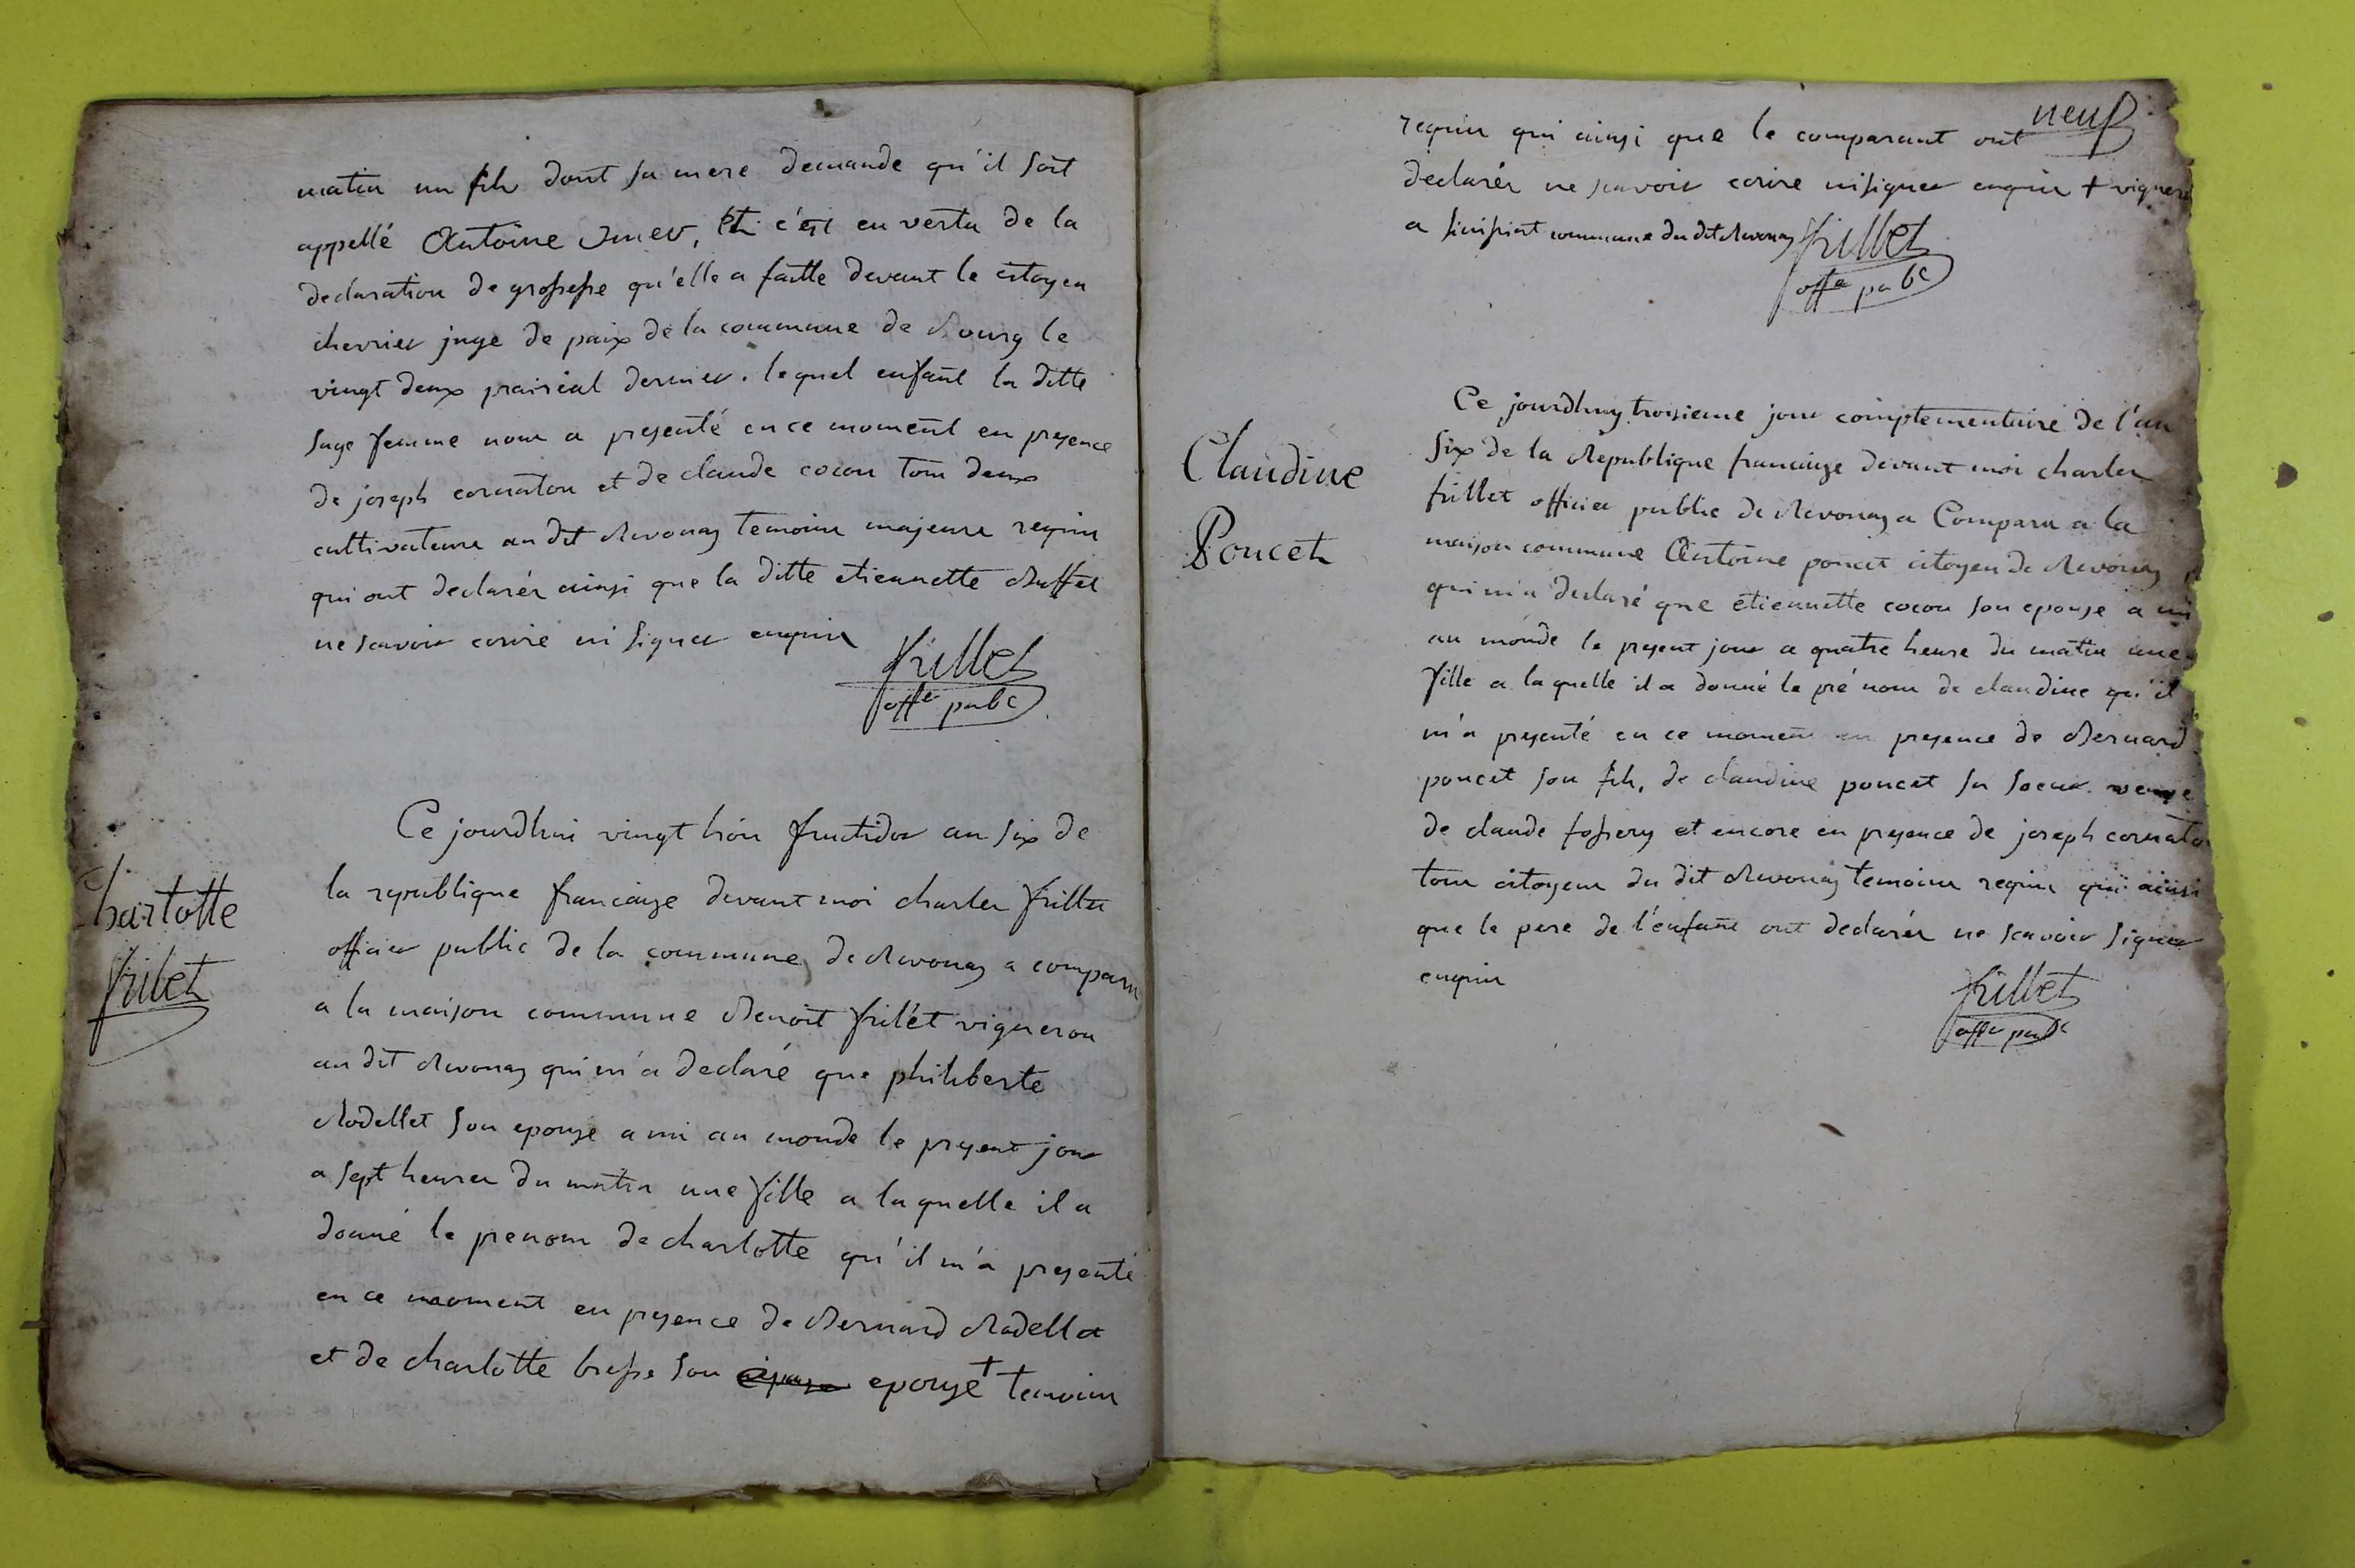 matin un fils dont sa mere demande qu'il soit
appellé Antoine Imer, Et c'est en vertu de la
declaration de grossesse qu'elle a faitte devant le citoyen
chevrier juge de paix de la commune de Bourg le
vingt deux prairial dernier. lequel enfant la ditte
sage femme nous a presenté en ce moment en presence
de joseph cornaton et de claude cocon tous deux
cultivateurs au dit Revonas temoins majeurs requis
qui ont declarés ainsi que la ditte etiennette Buffet
ne scavoir ecrire ni signer enquis
frillet
offer pubc
Charlotte
frilet
Ce jourdhui vingt trois fructidor an six de
la republique francaise devant moi charles frillet
officier public de la commune de Revonas a comparu
a la maison commune Benoit frilét vigneron
au dit Revonas qui m'a declaré que philiberte
Rodellet son epouse a mis au monde le present jour
a sept heures du matin une fille a laquelle il a
donné le prenom de charlotte qu'il m'a presenté
en ce moment en presence de Bernard Rodellet
et de charlotte bresse son epouse + temoins
neuf
requis qui ainsi que le comparant ont
declarés ne scavoir ecrire ni signer enquis + vigneron
a commune du dit Revonas
frillet
offer pubc
Claudine
Poncet
Ce jourdhuy troisieme jour complementaire de l'an
six de la Republique francaise devant moi charles
frillet officier public de Revonas a Comparu a la
maison commune Antoine poncet citoyen de Revonas
qui m'a declaré que etiennette cocon son epouse a mis
au monde le present jour a quatre heure du matin une
fille a laquelle il a donné le pré nom de claudine qu'il
m'a presenté en ce moment en presence de Bernard
poncet son fils, de claudine poncet sa soeur veuve
de claude fossery et encore en presence de joseph cornaton
tous citoyens du dit Revonas temoins requis qui ainsi
que le pere de l'enfant ont declarés ne scavoir signer
enquis
frillet
offer pubc